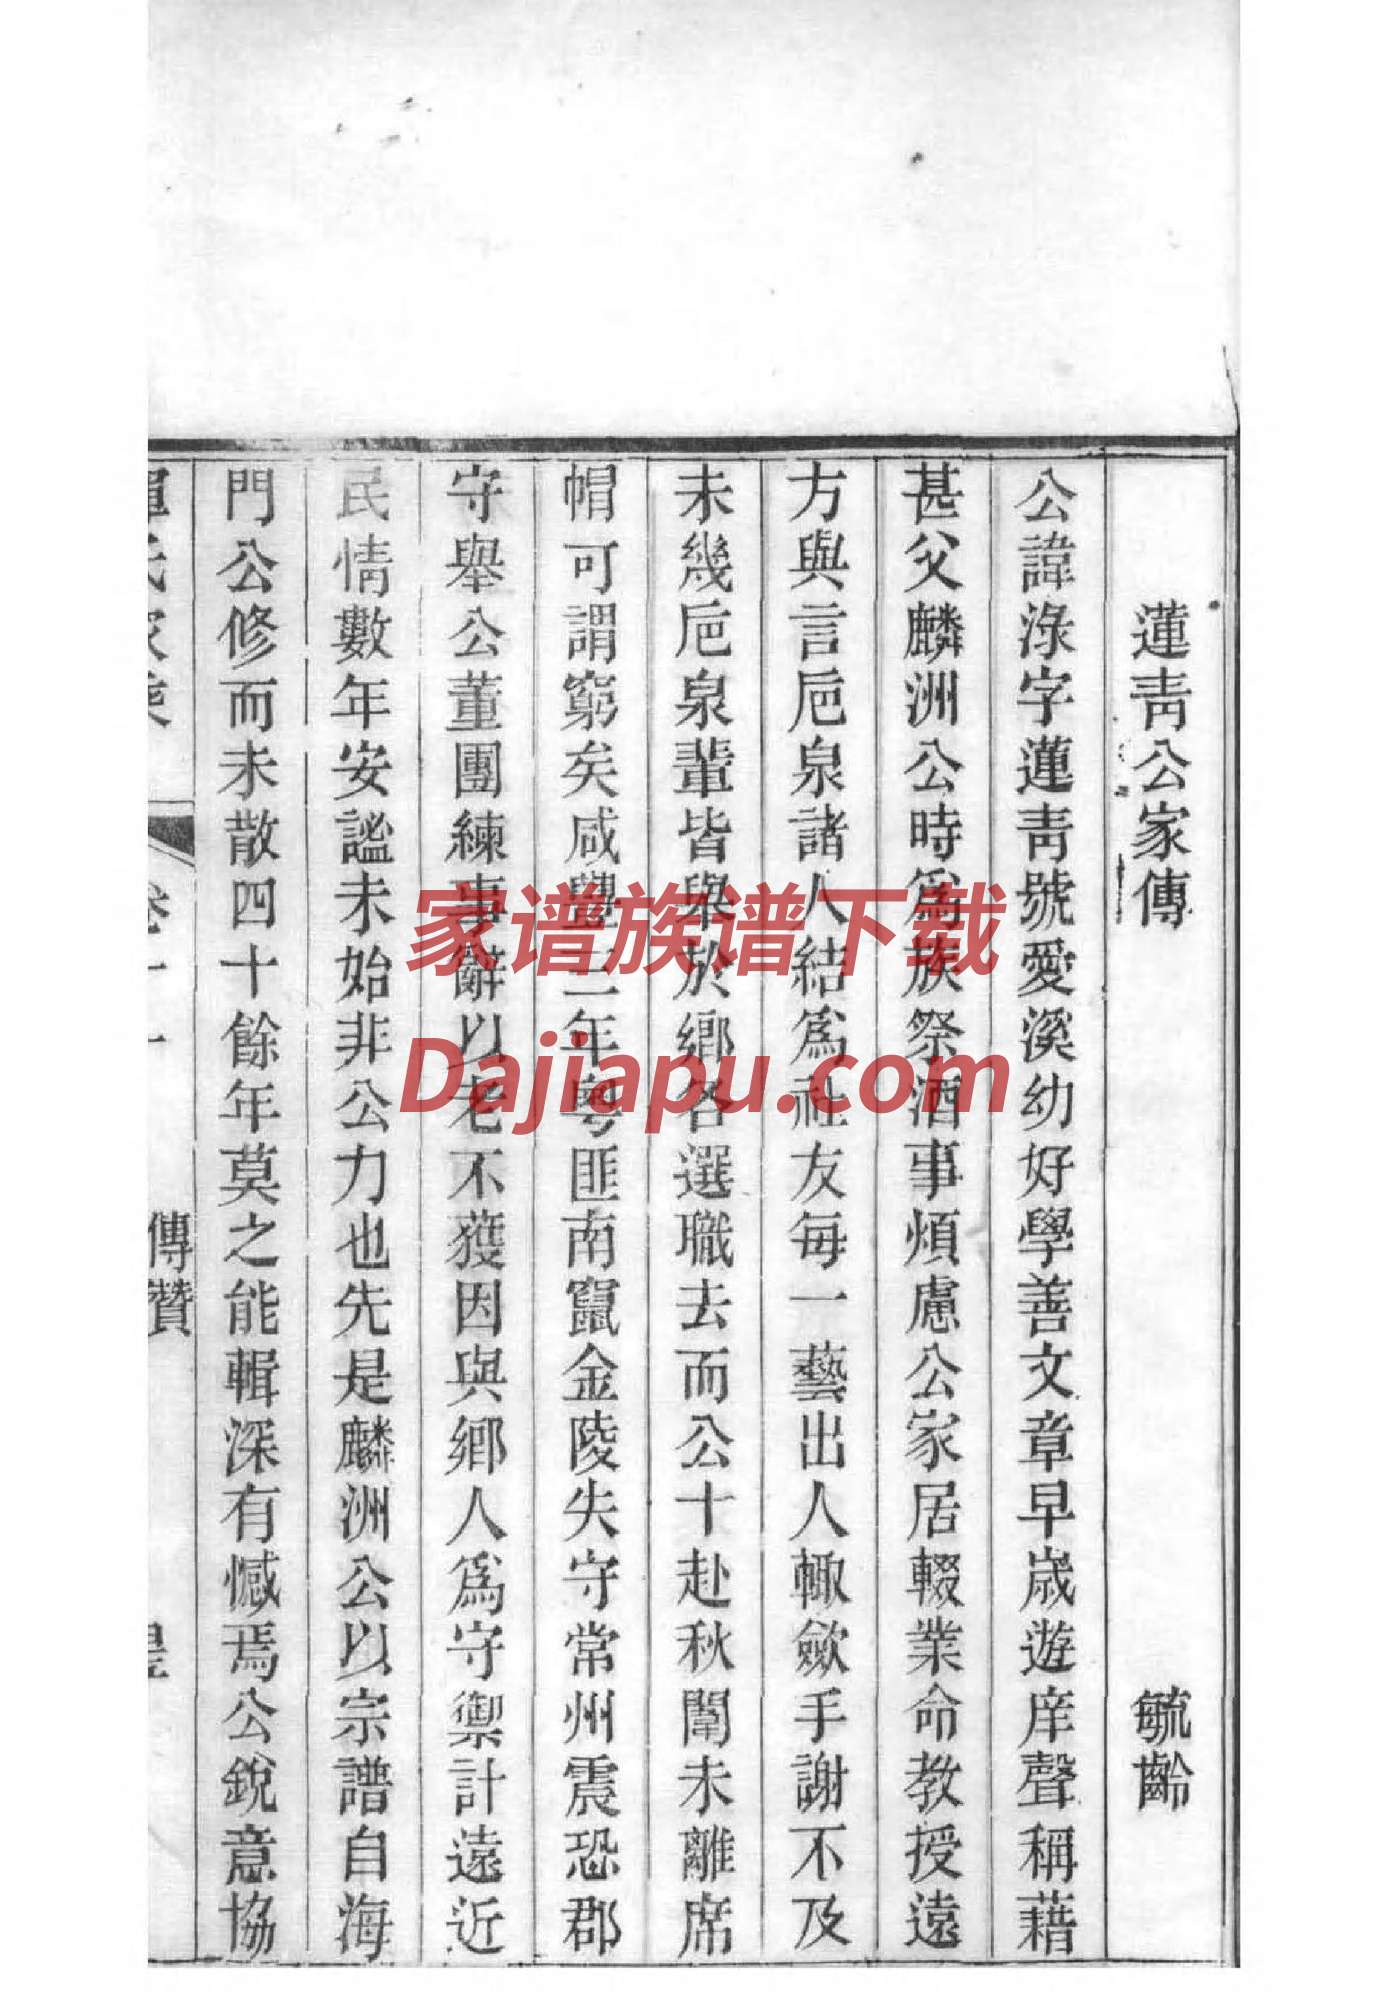 蓮青公家傳 毓齡
公諱淥字蓮青號愛溪幼好學善文章早歲遊庠聲稱藉
甚父麟洲公時爲族祭酒事煩慮公家居輟業命教授遠
方與言卮泉諸人結爲社友每一藝出人輙歛手謝不及
未幾卮泉輩皆舉於鄉各選職去而公十赴秋闈未離席
帽可謂窮矣咸豐三年粵匪南竄金陵失守常州震恐郡
守舉公董團練事辭以老不獲因與鄉人爲守禦計遠近
民情數年安謐未始非公力也先是麟洲公以宗譜自海
門公修而未散四十餘年莫之能輯深有憾焉公銳意協
傳贊
家谱族谱下载
Dajiapu.com